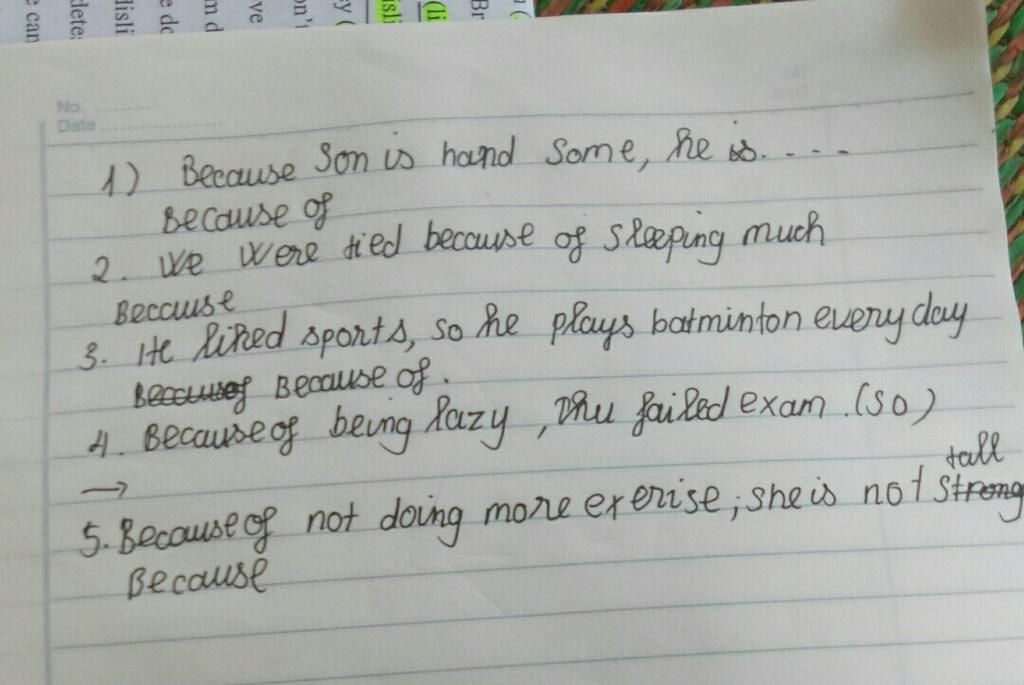 No. ............
Date ......................
1) Because Son is hand some, he is. - - -
Because of
2. We were tied because of sleeping much
Because
3. He liked sports, so he plays batminton every day
Because of.
4. Because of being lazy, Thu failed exam. (so)
→
tall
5. Because of not doing more exerise, she is not strong
Because